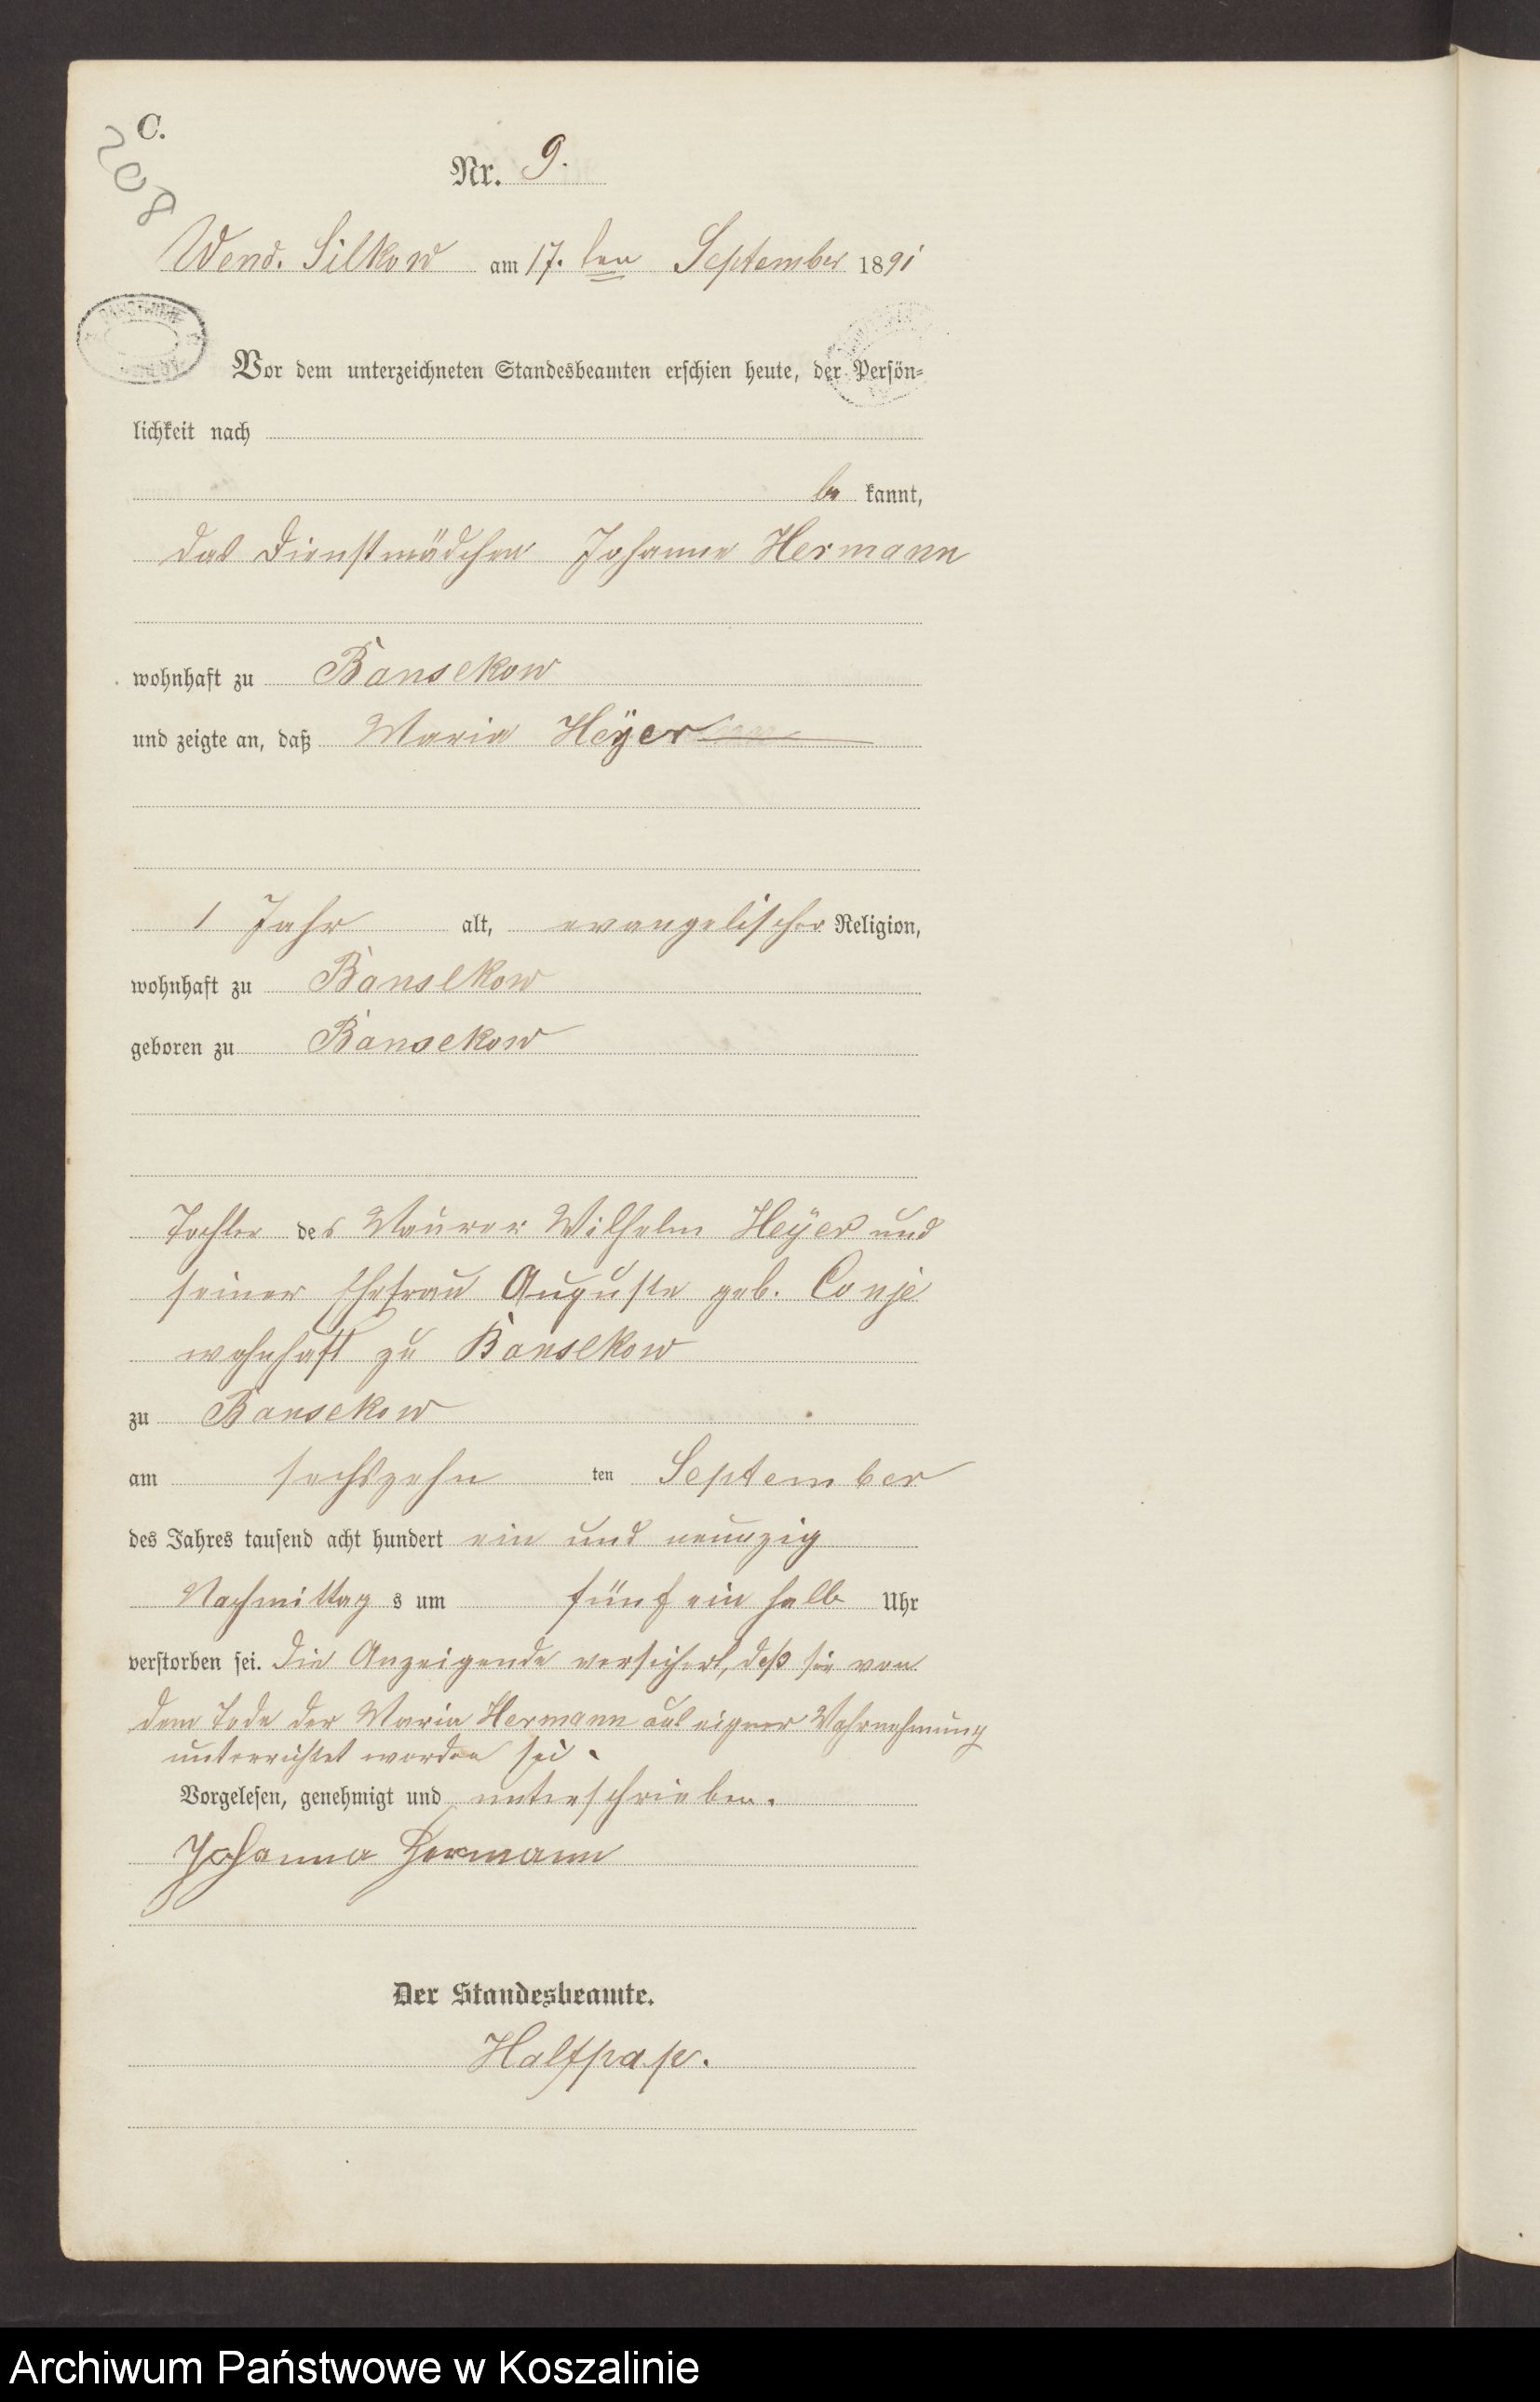 C.
208
Nr. 9.
Wend. Silkow am 17. ten September 1891
Vor dem unterzeichneten Standesbeamten erschien heute, der Persön-
lichkeit nach
be kannt,
das Dienstmädchen Johanne Hermann
wohnhaft zu Bansekow
und zeigte an, daß Maria Heÿer
1 Jahr alt, evangelischer Religion,
wohnhaft zu Bansekow
geboren zu Bansekow
Tochter des Maurer Wilhelm Heÿer und
seiner Ehefrau Auguste geb. Conje
wohnhaft zu Bansekow
zu Bansekow
am sechszehn ten September
des Jahres tausend acht hundert ein und neunzig
Nachmittag s um fünf ein halb Uhr
verstorben sei. Die Anzeigende versichert, daß sie von
dem Tode der Maria Hermann aus eigner Wahrnehmung
unterrichtet worden sei.
Vorgelesen, genehmigt und unterschrieben.
Johanna Hermann
Der Standesbeamte.
Halfpap.
Archiwum Państwowe w Koszalinie